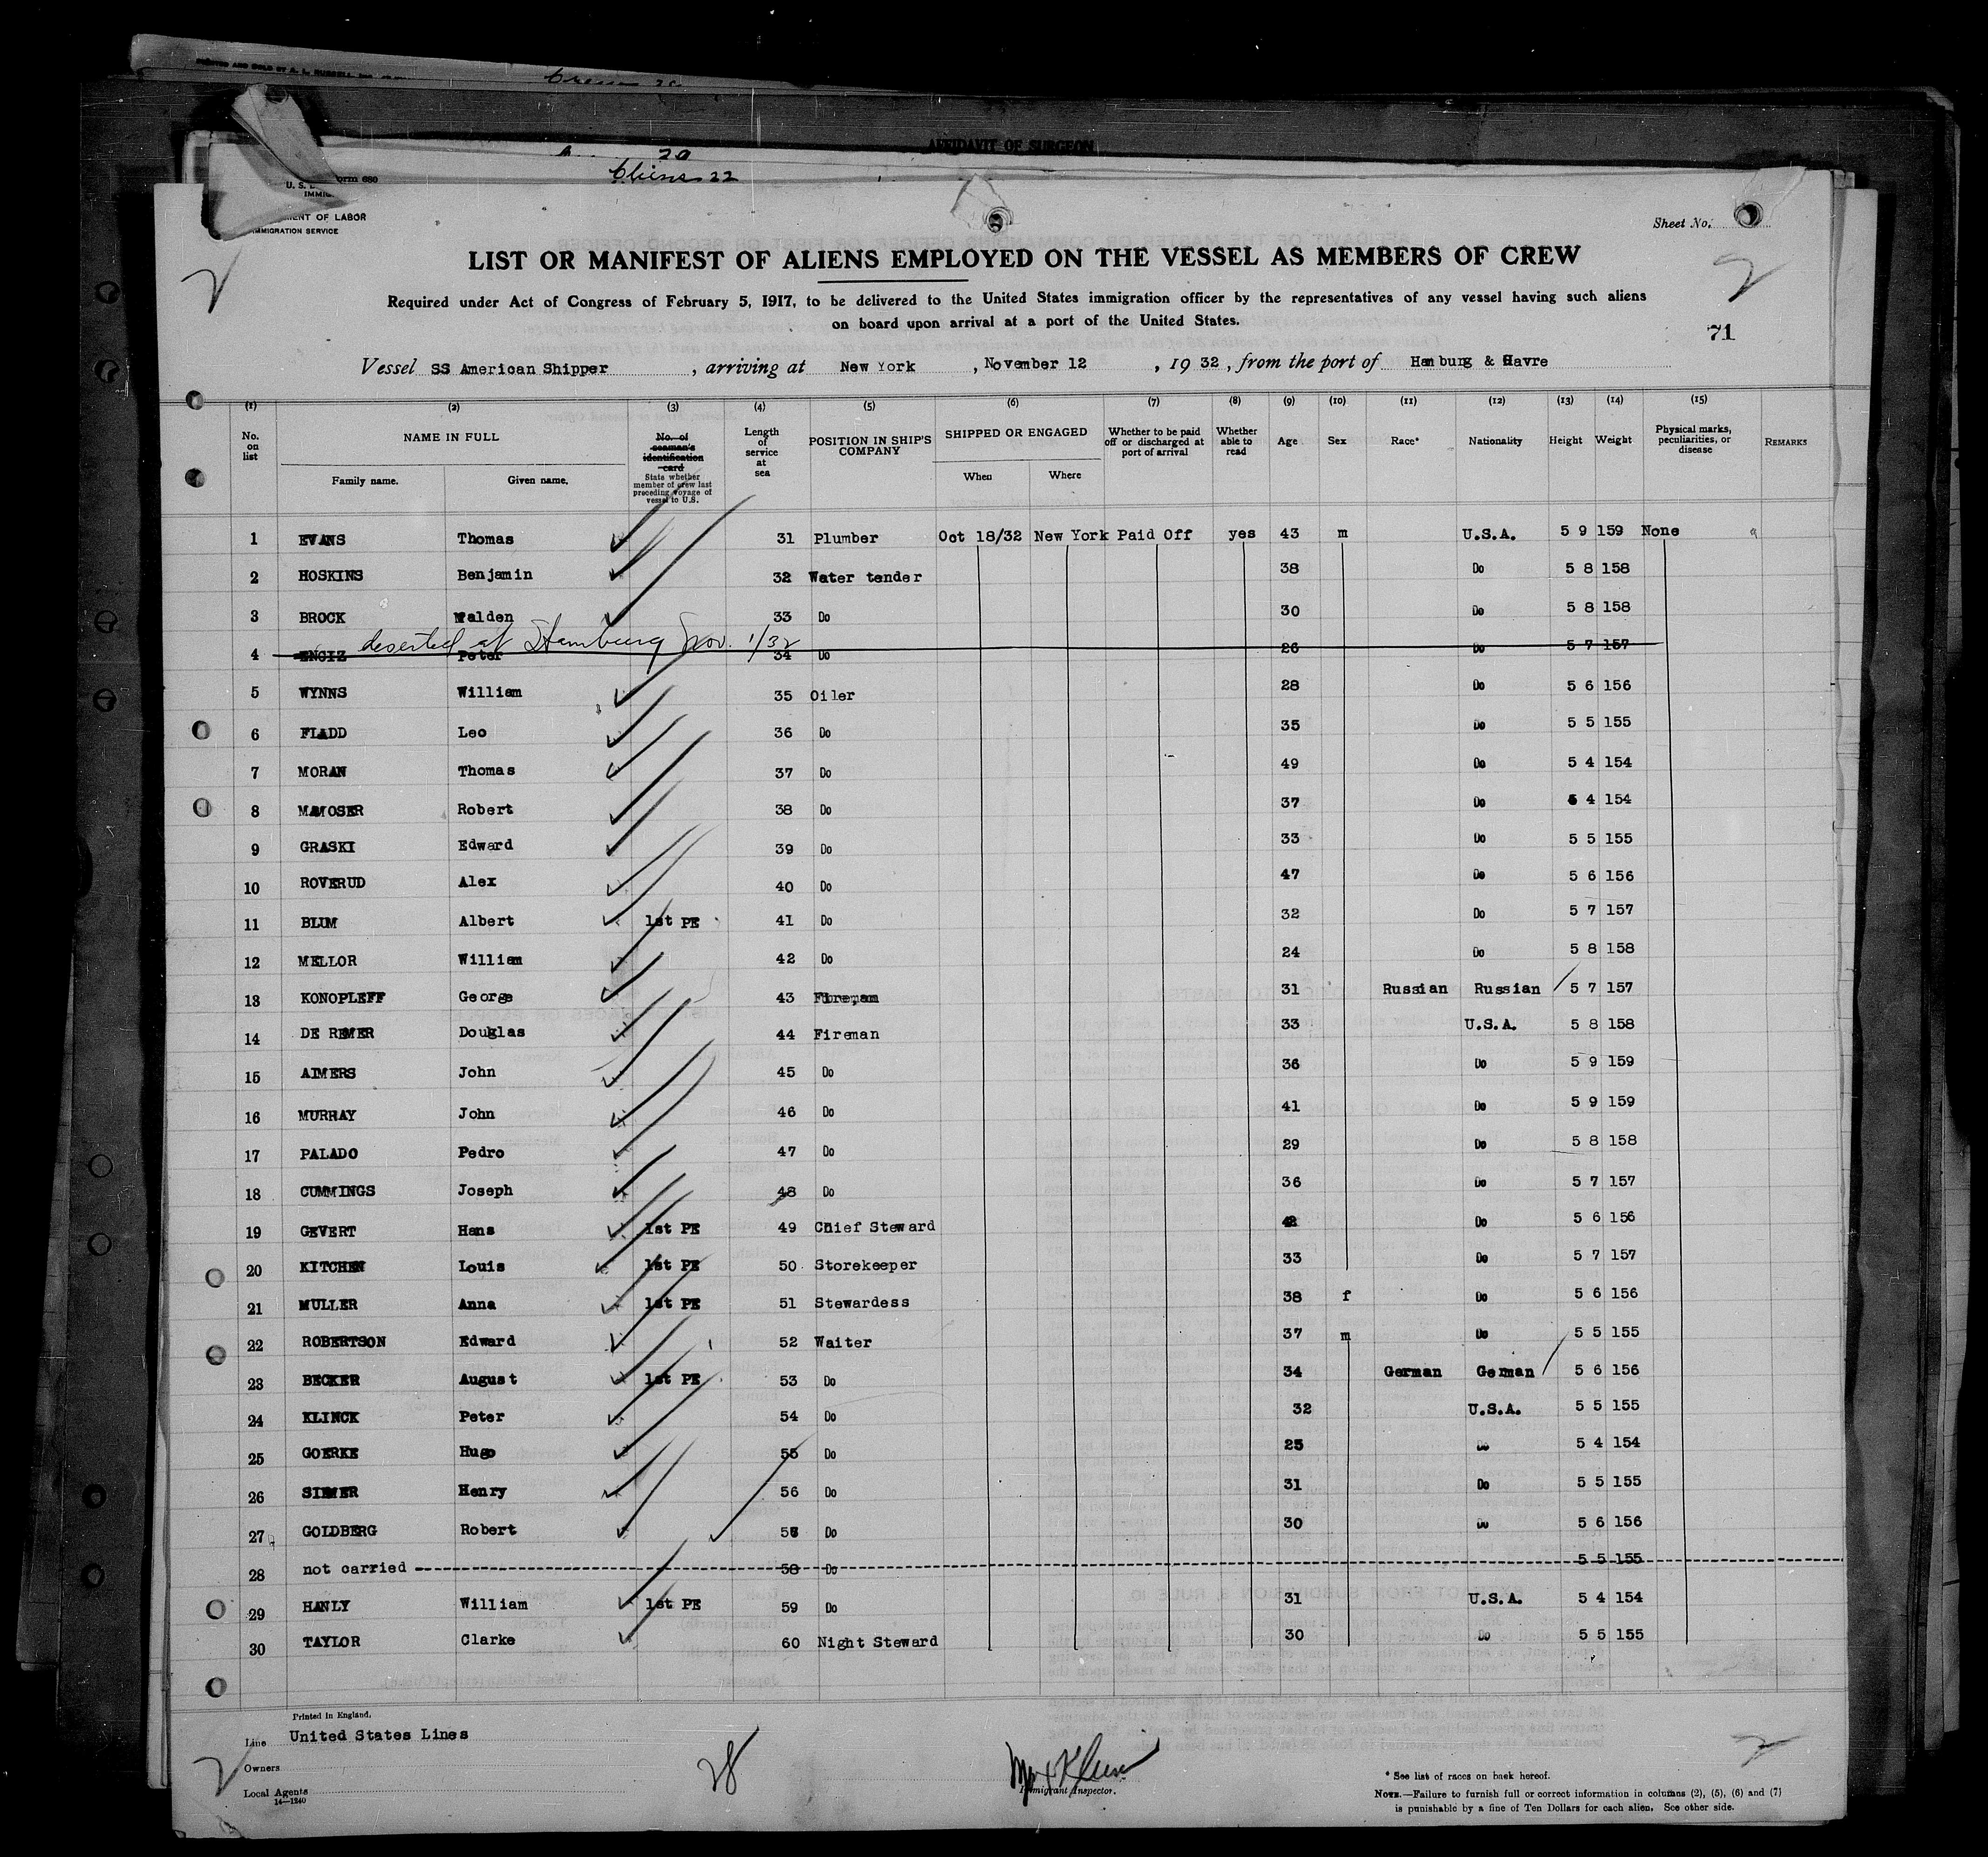 PRINTED AND SOLD BY A. L. RUSSELL, INC.
AFFIDAVIT OF SURGEON
20
Aliens 22
Form 680
U. S.
OF LABOR
IMMIGRATION SERVICE
Sheet No.
LIST OR MANIFEST OF ALIENS EMPLOYED ON THE VESSEL AS MEMBERS OF CREW
2 2
Required under Act of Congress of February 5, 1917, to be delivered to the United States immigration officer by the representatives of any vessel having such aliens
on board upon arrival at a port of the United States.
71
Vessel SS American Shipper, arriving at New York, November 12, 1932, from the port of Hamburg & Havre
(1) (2) (3) (4) (5) (6) (7) (8) (9) (10) (11) (12) (13) (14) (15)
No. on list NAME IN FULL Family name. Given name. No. of seaman's identification card State whether member of crew last preceding voyage of vessel to U.S. Length of service at sea POSITION IN SHIP'S COMPANY SHIPPED OR ENGAGED When Where Whether to be paid off or discharged at port of arrival Whether able to read Age Sex Race* Nationality Height Weight Physical marks, peculiarities, or disease REMARKS
1 EVANS Thomas 31 Plumber Oct 18/32 New York Paid Off yes 43 m U.S.A. 5 9 159 None
2 HOSKINS Benjamin 32 Water tender 38 Do 5 8 158
3 BROCK Walden 33 Do 30 Do 5 8 158
deserted at Hamburg Nov. 1/32
4 ENGIZ Peter 34 Do 26 Do 5 7 157
5 WYNNS William 35 Oiler 28 Do 5 6 156
6 FLADD Leo 36 Do 35 Do 5 5 155
7 MORAN Thomas 37 Do 49 Do 5 4 154
8 MAMOSER Robert 38 Do 37 Do 5 4 154
9 GRASKI Edward 39 Do 33 Do 5 5 155
10 ROVERUD Alex 40 Do 47 Do 5 6 156
11 BLUM Albert 1st PE 41 Do 32 Do 5 7 157
12 MELLOR William 42 Do 24 Do 5 8 158
13 KONOPLEFF George 43 31 Russian Russian 5 7 157
14 DE REMER Douglas 44 Fireman 33 U.S.A. 5 8 158
15 AIMERS John 45 Do 36 Do 5 9 159
16 MURRAY John 46 Do 41 Do 5 9 159
17 PALADO Pedro 47 Do 29 Do 5 8 158
18 CUMMINGS Joseph 48 Do 36 Do 5 7 157
19 GEVERT Hans 1st PE 49 Chief Steward 42 Do 5 6 156
20 KITCHEN Louis 1st PE 50 Storekeeper 33 Do 5 7 157
21 MULLER Anna 1st PE 51 Stewardess 38 f Do 5 6 156
22 ROBERTSON Edward 52 Waiter 37 m Do 5 5 155
23 BECKER August 1st PE 53 Do 34 German German 5 6 156
24 KLINCK Peter 54 Do 32 U.S.A. 5 5 155
25 GOERKE Hugo 55 Do 25 Do 5 4 154
26 SIEMER Henry 56 Do 31 Do 5 5 155
27 GOLDBERG Robert 57 Do 30 Do 5 6 156
28 not carried 58 Do 5 5 155
29 HANLY William 1st PE 59 Do 31 U.S.A. 5 4 154
30 TAYLOR Clarke 60 Night Steward 30 Do 5 5 155
Printed in England.
Line United States Lines
Owners
Local Agents
14—1240
2 28 2
Immigrant Inspector.
* See list of races on back hereof.
NOTE.—Failure to furnish full or correct information in columns (2), (5), (6) and (7)
is punishable by a fine of Ten Dollars for each alien. See other side.